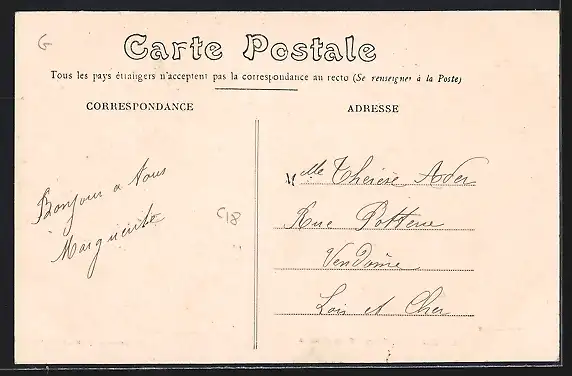 G
Carte Postale
Tous les pays étrangers n'acceptent pas la correspondance au recto (Se renseigner à la Poste)
CORRESPONDANCE
ADRESSE
Bonjour a tous
Marguerite
C18
Mlle Therèse Ader
Rue Potterie
Vendôme
Loir et Cher